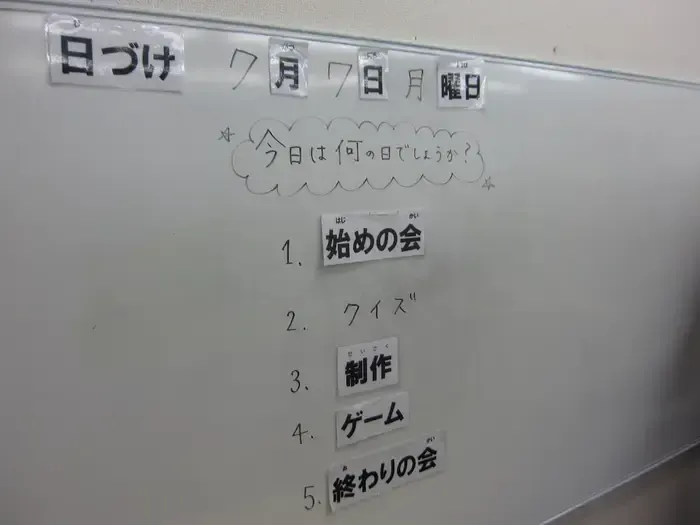 日づけ 7月7日月曜日
今日は何の日でしょうか?
1. 始めの会
2. クイズ
3. 制作
4. ゲーム
5. 終わりの会